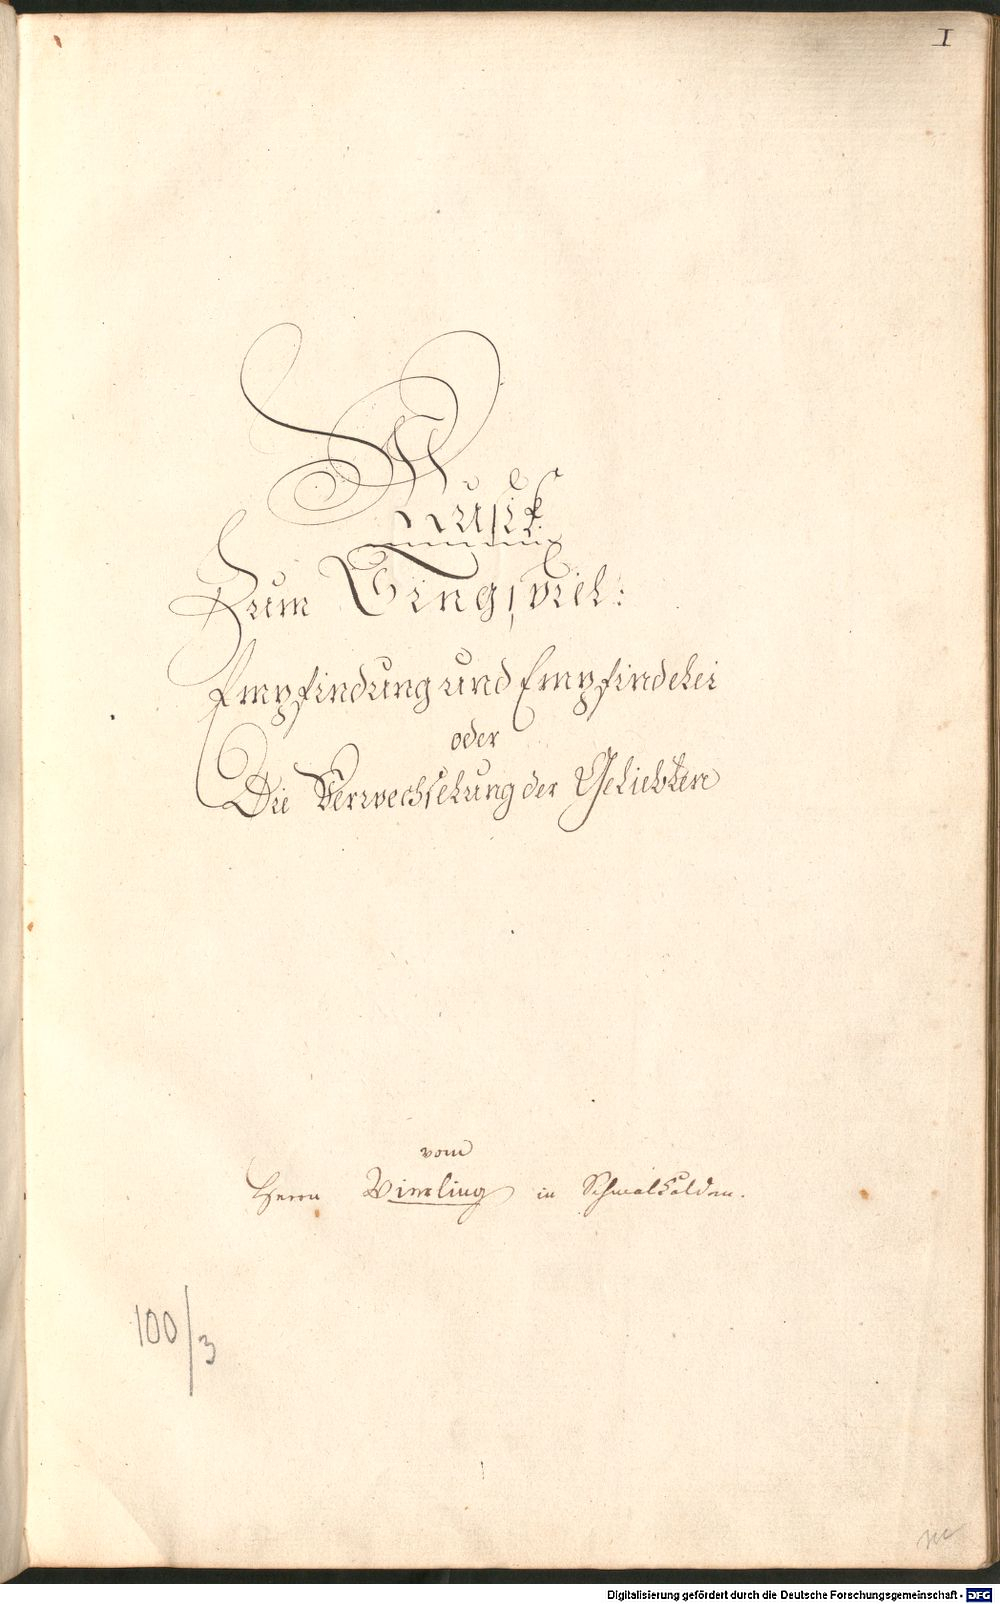 I
Musik
Zum Singspiel:
Empfindung und Empfindelei
oder
Die Verwechselung der Geliebten
vom
Herrn Vierling in Schmalkalden.
100/3
Digitalisierung gefördert durch die Deutsche Forschungsgemeinschaft - DFG